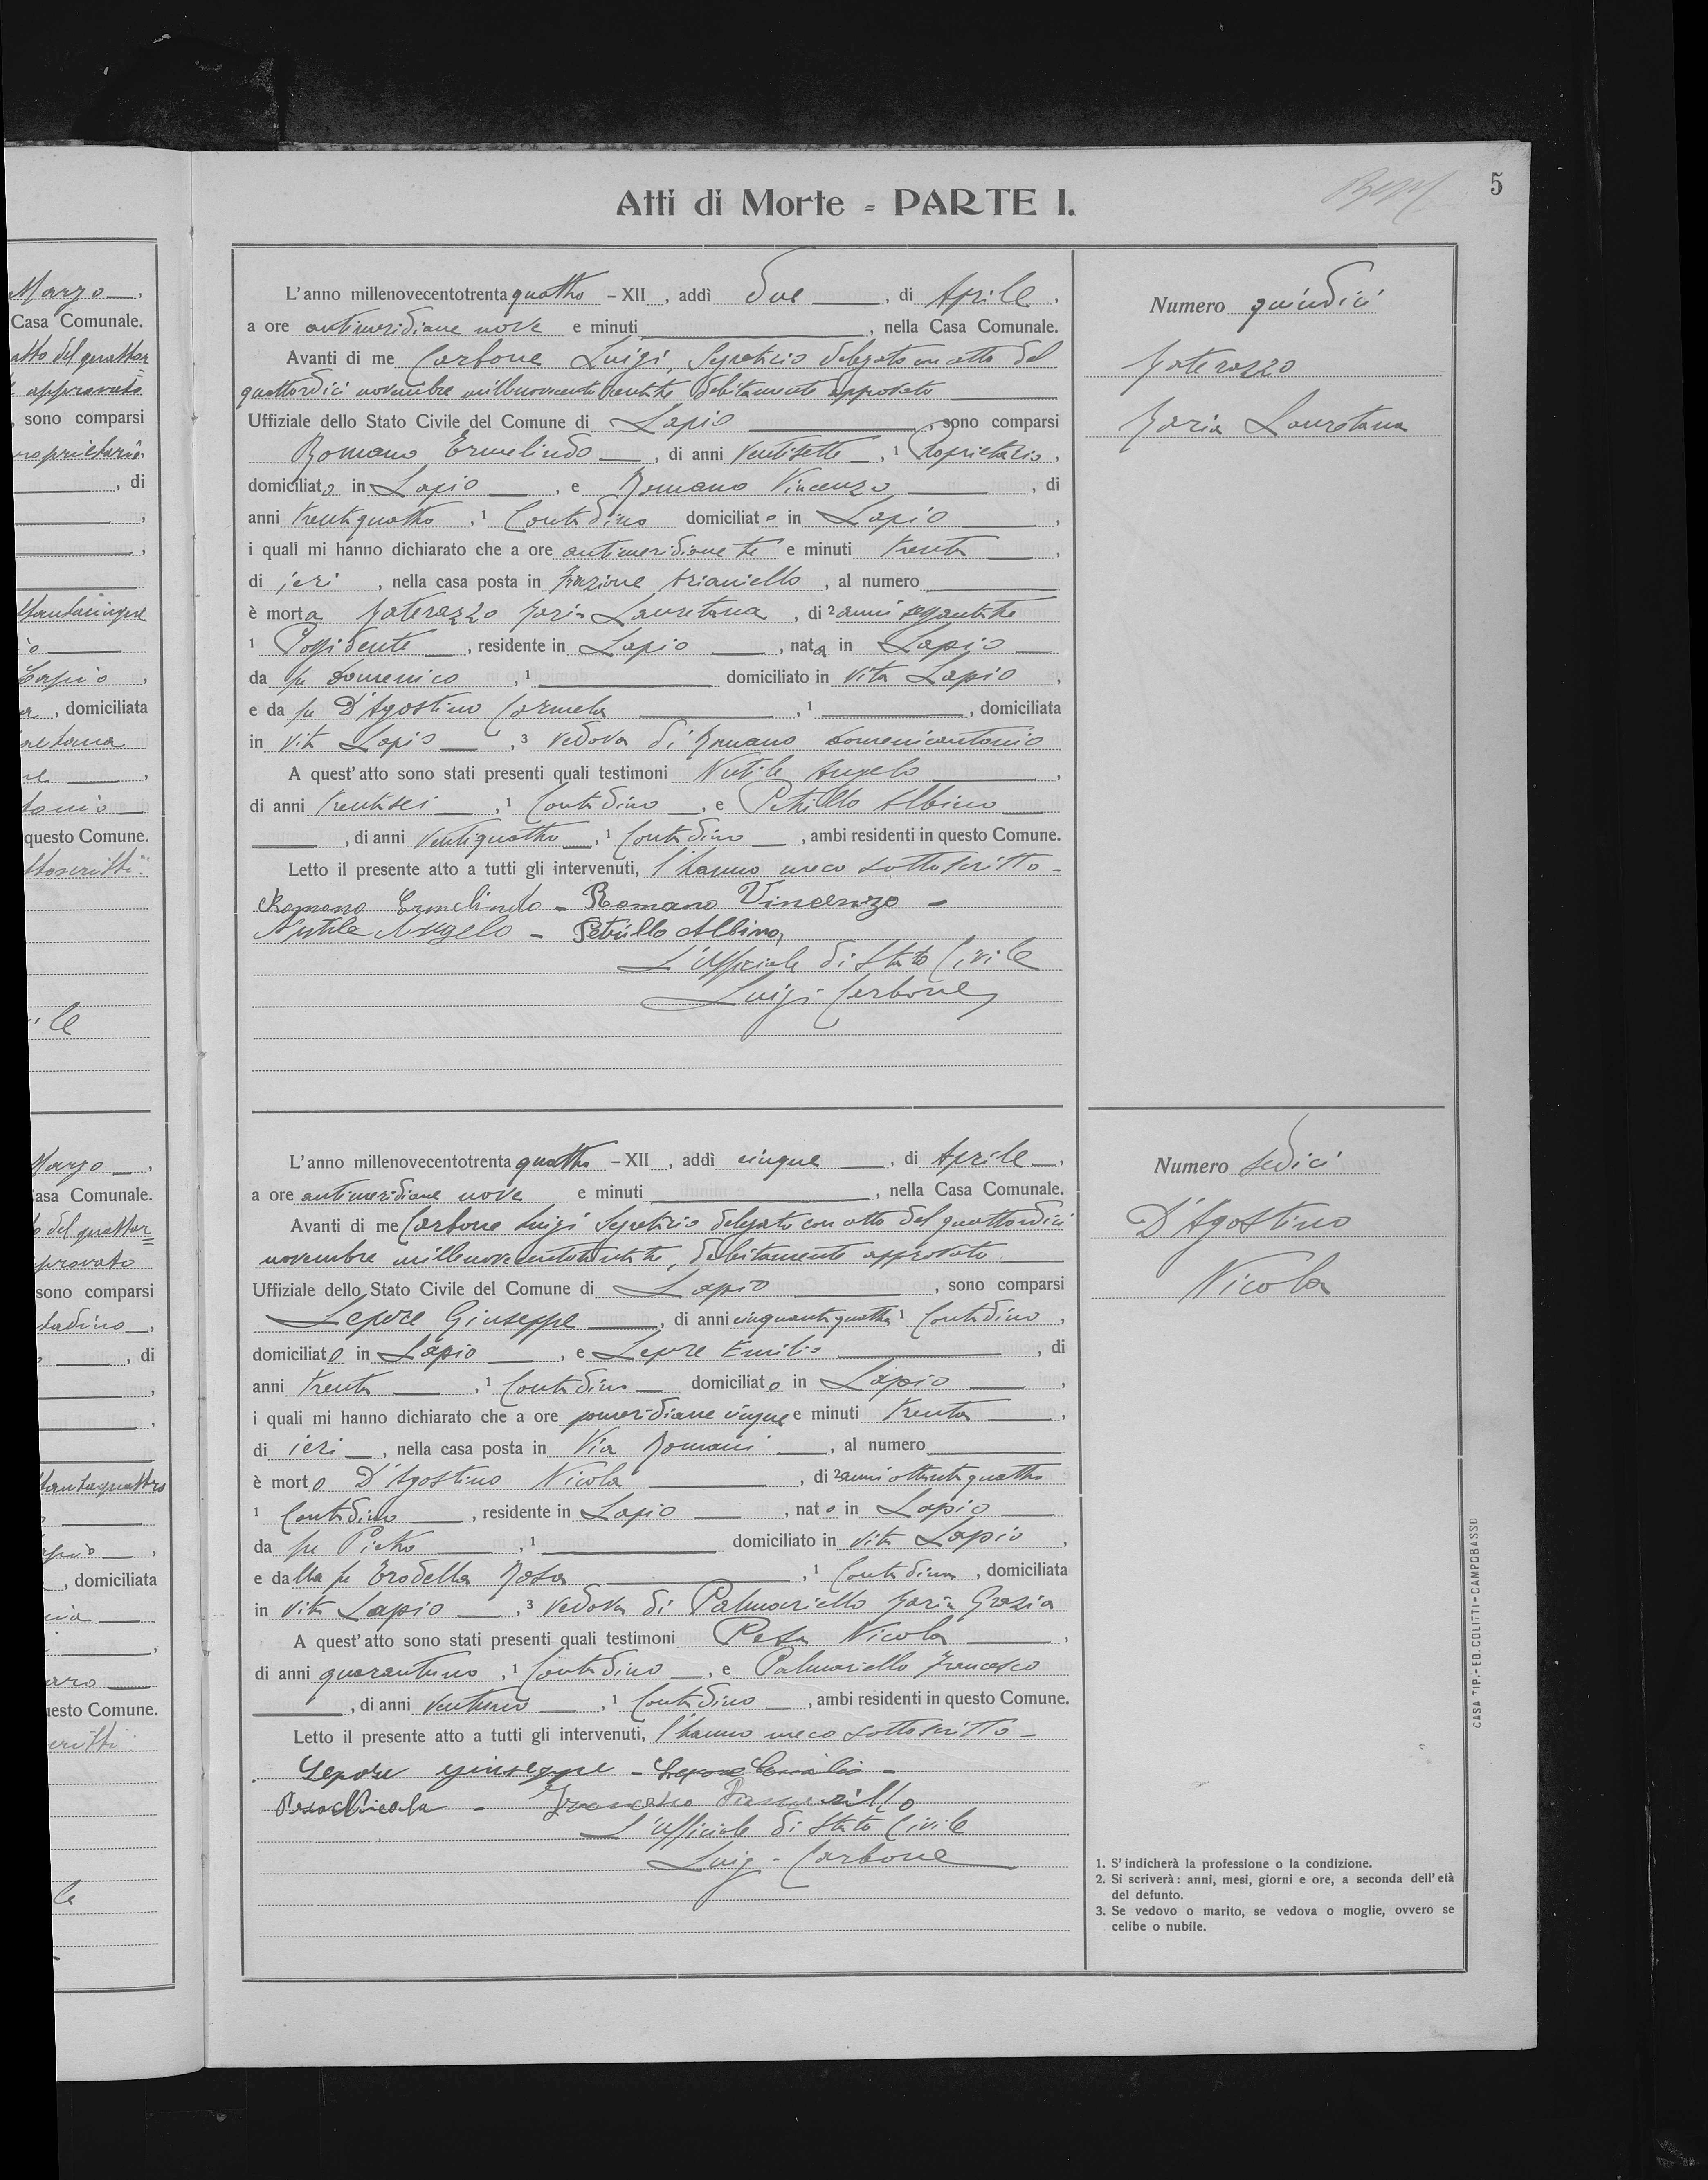 5
Atti di Morte = PARTE I.
Marzo
Casa Comunale.
atto del quattor=
approvato
, sono comparsi
proprietario
, di
Lapio
, domiciliata
questo Comune.
L'anno millenovecentotrentaquattro – XII , addì due , di Aprile ,
a ore antimeridiane nove e minuti , nella Casa Comunale.
Avanti di me Carbone Luigi, Segretario delegato con atto del
quattordici novembre millenovecentoventitre, debitamente approvato
Uffiziale dello Stato Civile del Comune di Lapio , sono comparsi
Romano Ermelindo , di anni ventisette , 1 Proprietario ,
domiciliato in Lapio , e Romano Vincenzo , di
anni trentaquattro , 1 Contadino domiciliato in Lapio ,
i quali mi hanno dichiarato che a ore antimeridiane tre e minuti trenta ,
di ieri , nella casa posta in Frazione Arianiello , al numero
è morta Materazzo Maria Lauretana , di 2 anni sessantatre
1 Possidente , residente in Lapio , nata in Lapio
da fu Domenico , 1 domiciliato in vita Lapio ,
e da fu D'Agostino Carmela , 1 , domiciliata
in vita Lapio , 3 vedova di Romano Domenicantonio
A quest'atto sono stati presenti quali testimoni Nutile Angelo ,
di anni trentasei , 1 Contadino , e Petrillo Albino
, di anni ventiquattro , 1 Contadino , ambi residenti in questo Comune.
Letto il presente atto a tutti gli intervenuti, l'hanno meco sottoscritto –
Romano Ermelindo – Romano Vincenzo –
Nutile Angelo – Petrillo Albino,
L'Ufficiale di Stato Civile
Luigi Carbone
Numero quindici
Materazzo
Maria Lauretana
Marzo
Casa Comunale.
del quattor=
approvato
sono comparsi
contadino
, di
, domiciliata
questo Comune.
L'anno millenovecentotrentaquattro – XII , addì cinque , di Aprile ,
a ore antimeridiane nove e minuti , nella Casa Comunale.
Avanti di me Carbone Luigi Segretario delegato con atto del quattordici
novembre millenovecentoventitre, debitamente approvato
Uffiziale dello Stato Civile del Comune di Lapio , sono comparsi
Lepore Giuseppe , di anni cinquantaquattro 1 Contadino ,
domiciliato in Lapio , e Lepore Emilio , di
anni trenta , 1 Contadino domiciliato in Lapio ,
i quali mi hanno dichiarato che a ore pomeridiane cinque e minuti trenta ,
di ieri , nella casa posta in Via Romani , al numero
è morto D'Agostino Nicola , di 2 anni ottantaquattro
1 Contadino , residente in Lapio , nato in Lapio
da fu Pietro , 1 domiciliato in vita Lapio ,
e dalla fu Trodella Rosa , 1 Contadina , domiciliata
in vita Lapio , 3 vedovo di Palmariello Maria Grazia
A quest'atto sono stati presenti quali testimoni Pesa Nicola ,
di anni quarantuno , 1 Contadino , e Palmariello Francesco
, di anni ventuno , 1 Contadino , ambi residenti in questo Comune.
Letto il presente atto a tutti gli intervenuti, l'hanno meco sottoscritto –
Lepore Giuseppe – Lepore Emilio –
Pesa Nicola – Francesco
L'Ufficiale di Stato Civile
Luigi Carbone
Numero sedici
D'Agostino
Nicola
1. S'indicherà la professione o la condizione.
2. Si scriverà: anni, mesi, giorni e ore, a seconda dell'età
del defunto.
3. Se vedovo o marito, se vedova o moglie, ovvero se
celibe o nubile.
CASA TIP.-ED. COLITTI-CAMPOBASSO